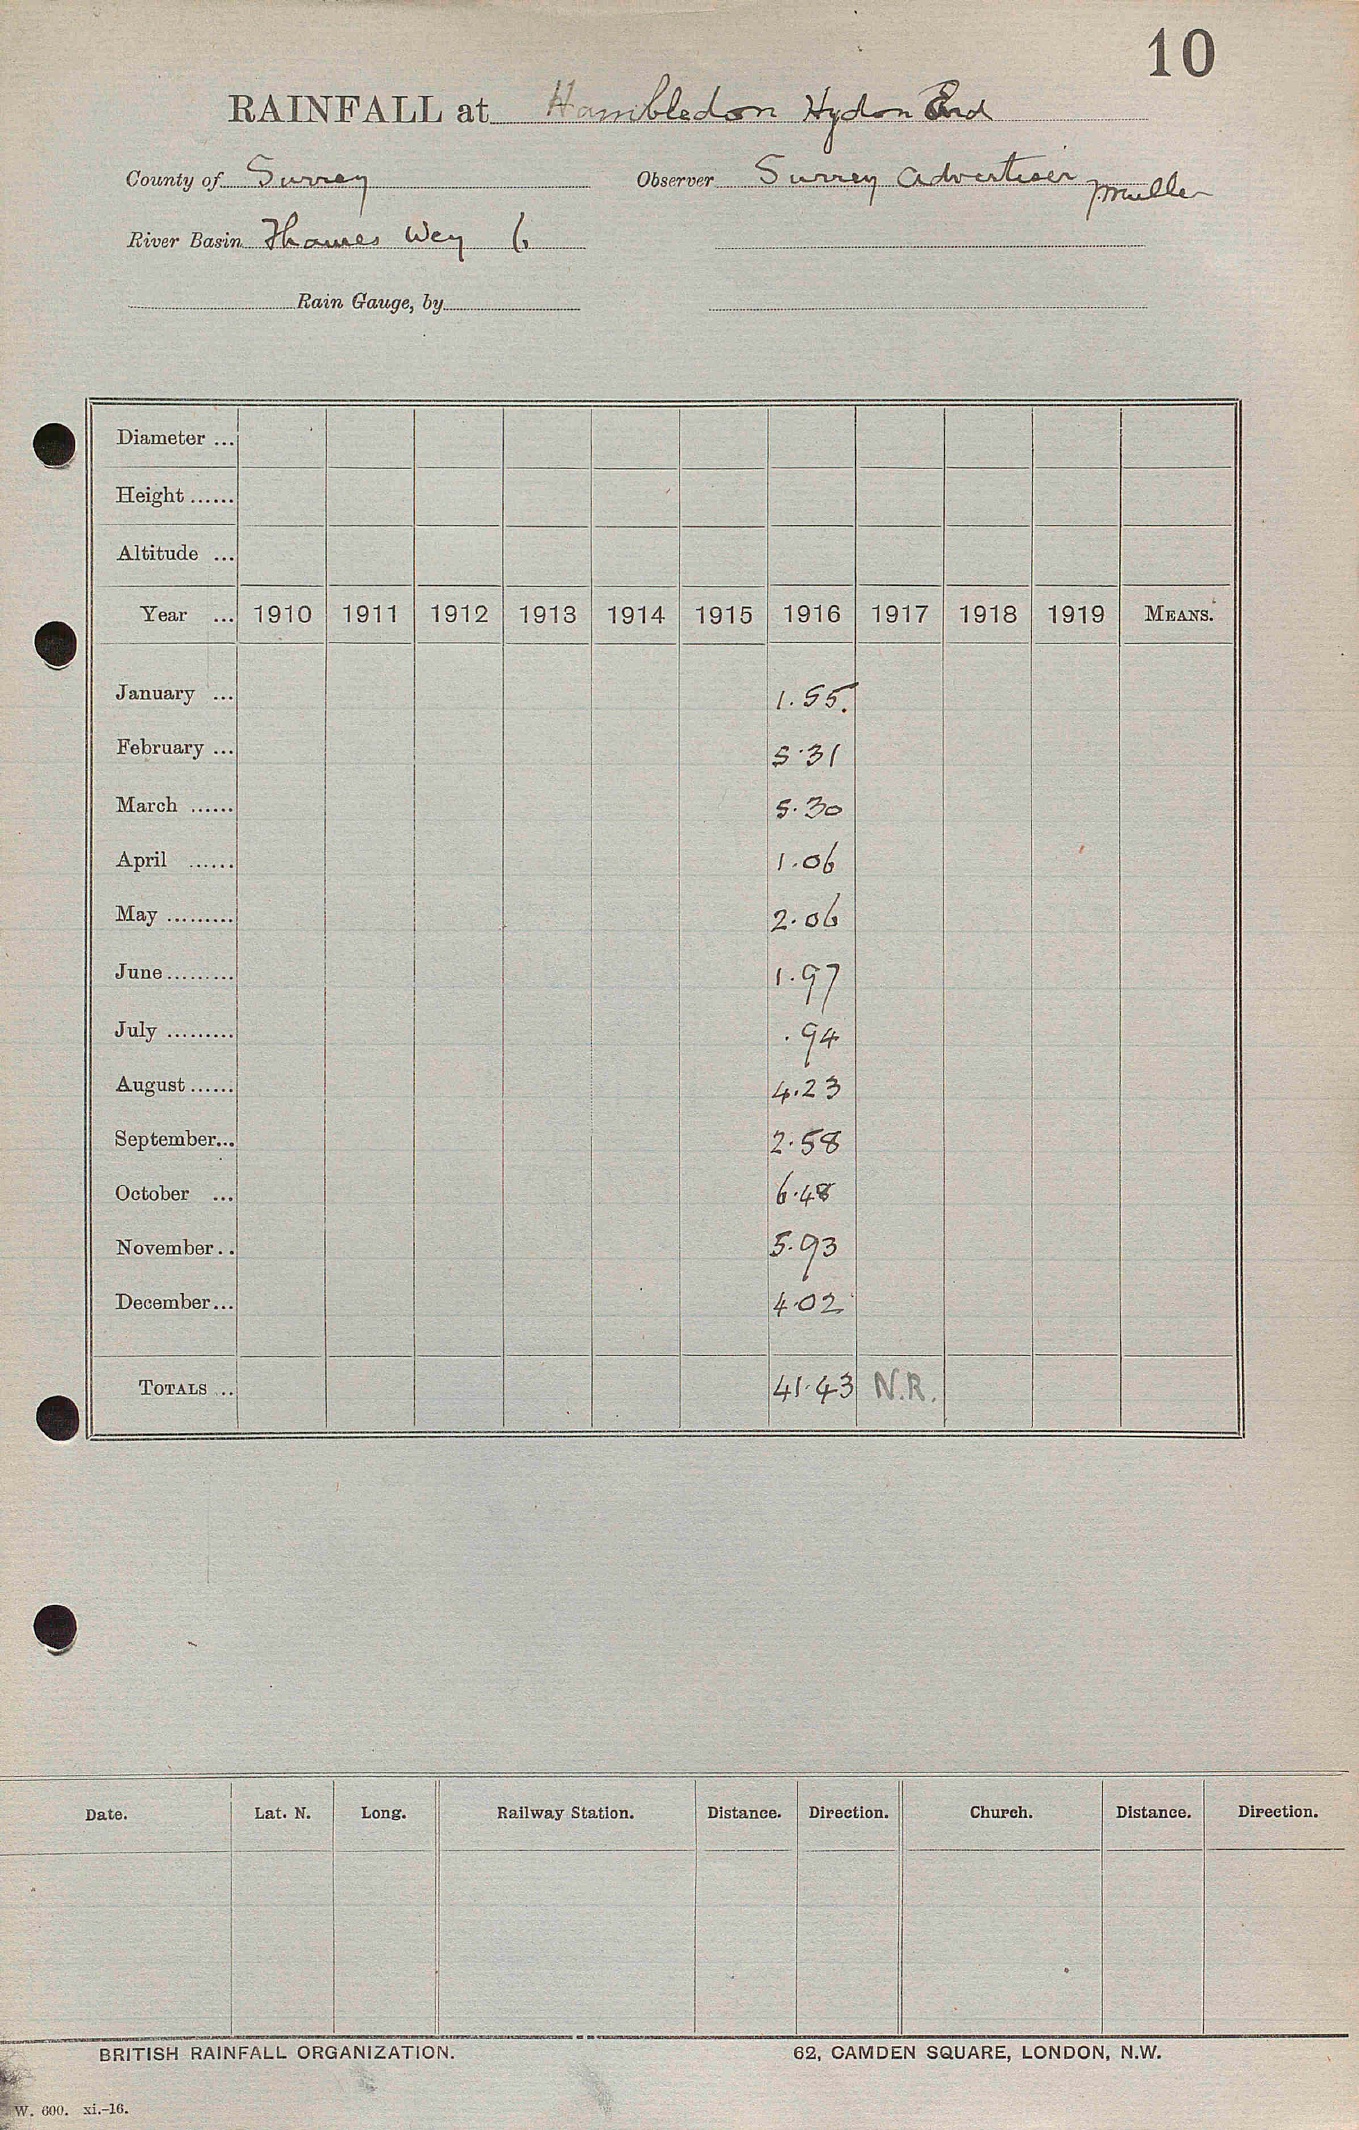 10
RAINFALL at Hambledon Hydon End
County of Surrey Observer Surrey Advertiser
River Basin Thames Wey 6
Rain Gauge, by
Diameter ...
Height ......
Altitude ...
Year ... 1910 1911 1912 1913 1914 1915 1916 1917 1918 1919 MEANS.
January ... 1.55.
February ... 5.31
March ...... 5.30
April ...... 1.06
May ......... 2.06
June ......... 1.97
July ......... .94
August ...... 4.23
September... 2.58
October ... 6.48
November.. 5.93
December... 4.02
TOTALS ... 41.43 N.R.
Date. Lat. N. Long. Railway Station. Distance. Direction. Church. Distance. Direction.
BRITISH RAINFALL ORGANIZATION. 62, CAMDEN SQUARE, LONDON, N.W.
W. 600. xi.-16.